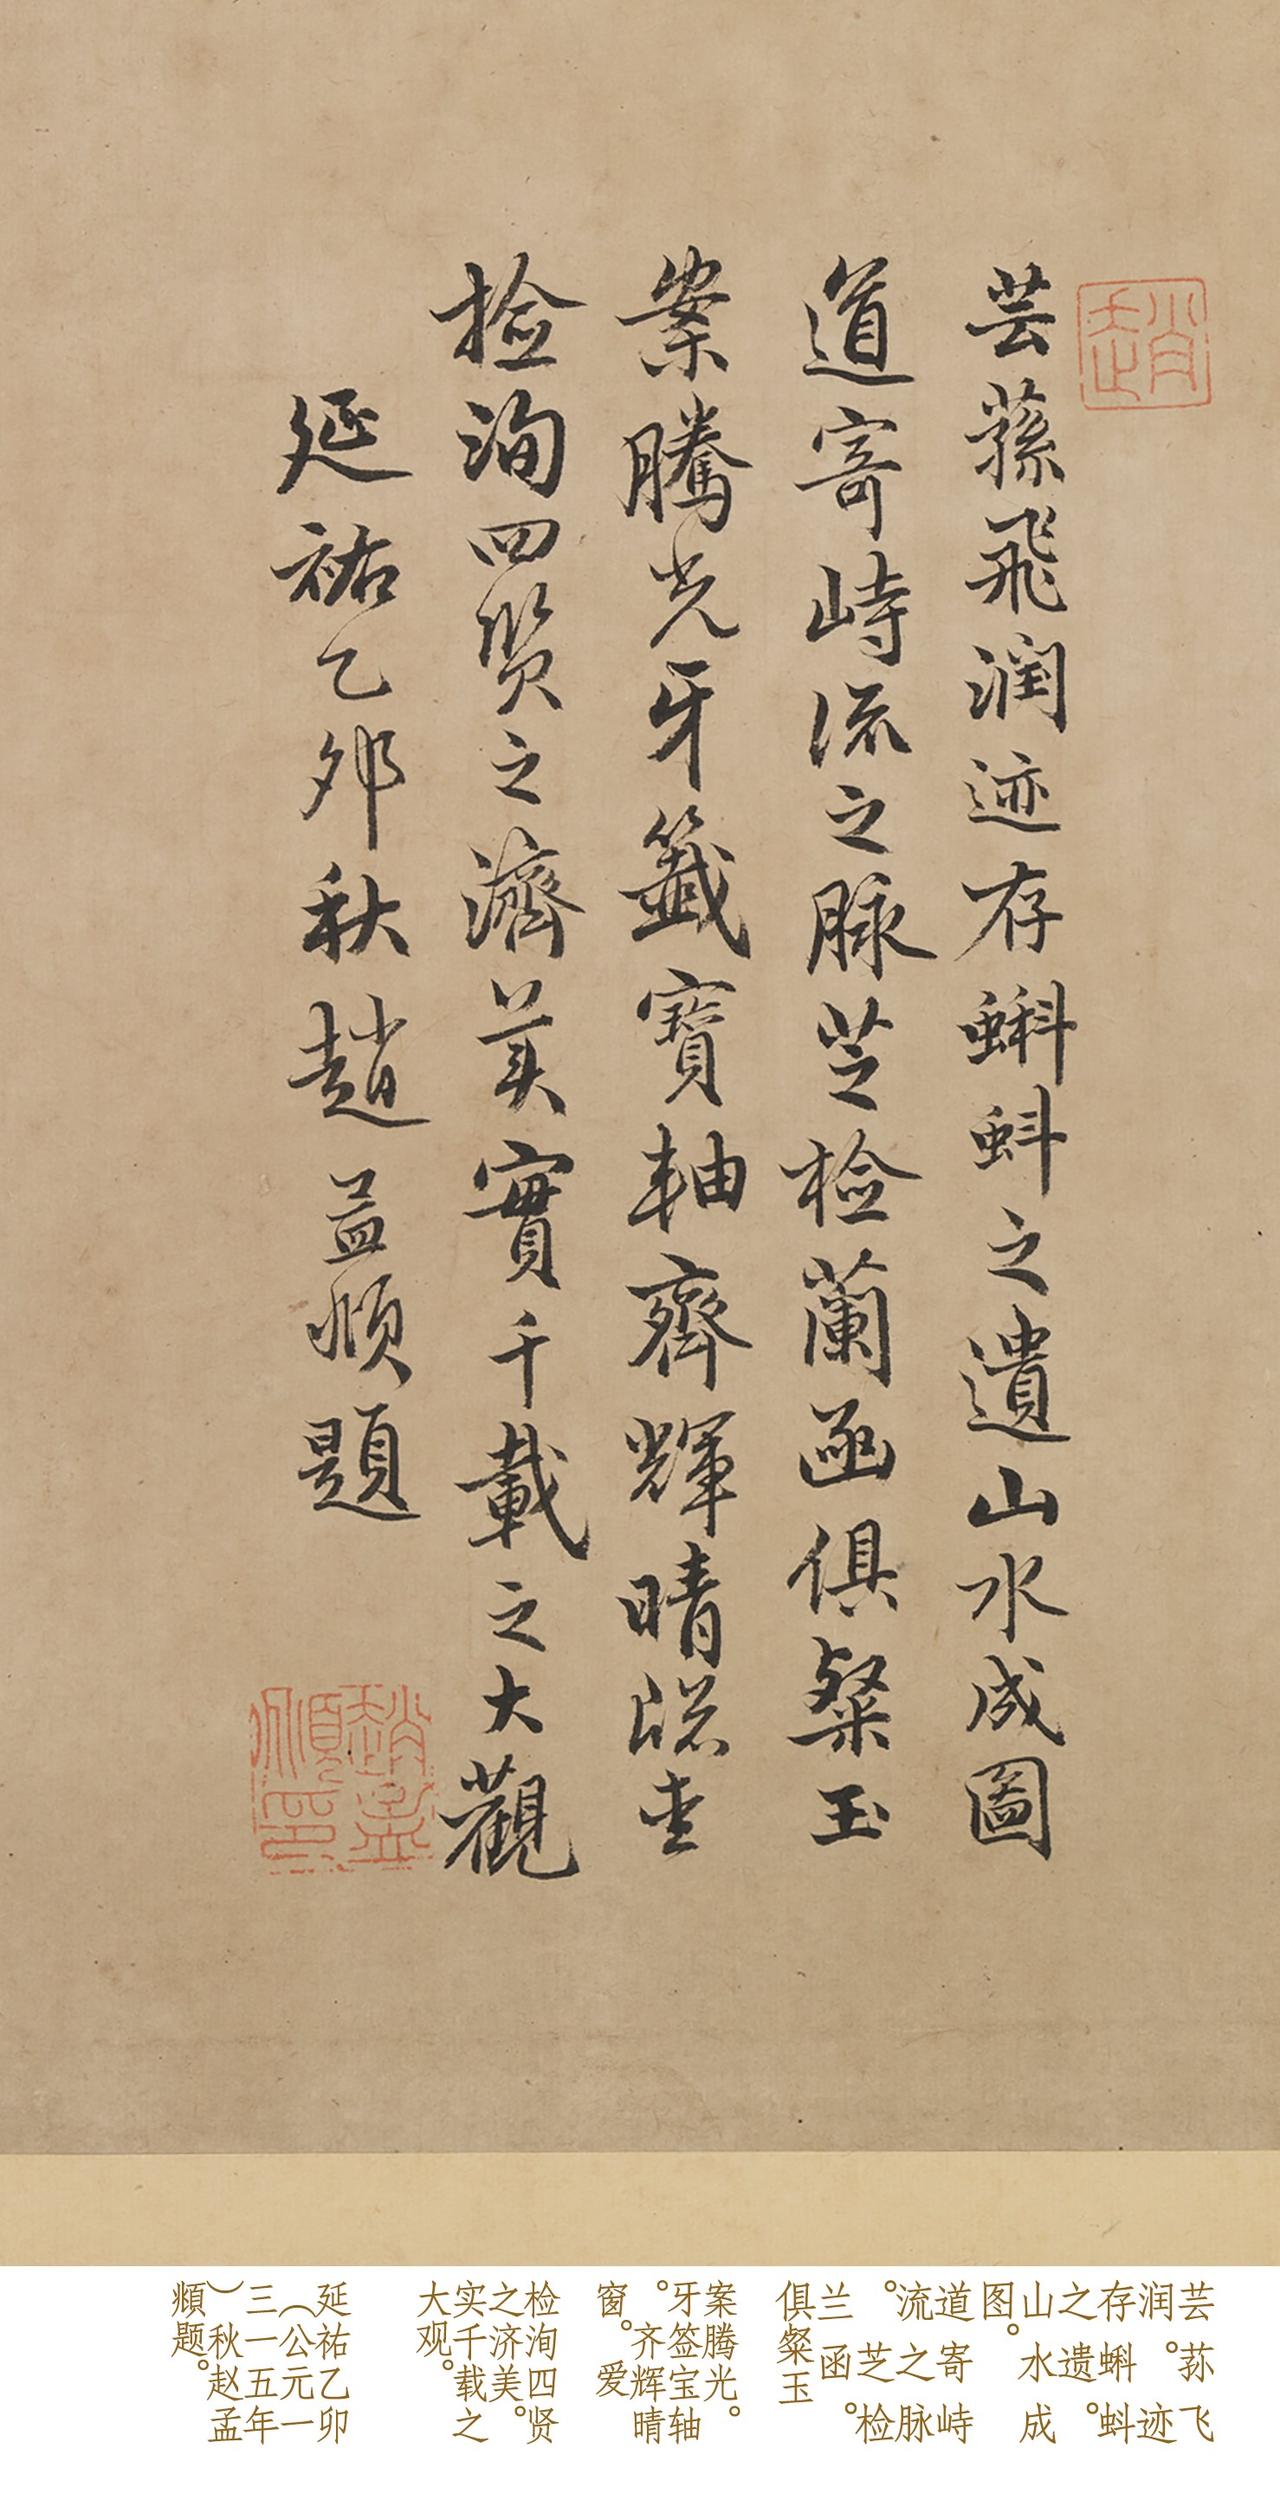 趙
芸蓀飛潤迹存蝌蚪之遺山水成圖
道寄峙流之脉芝检蘭函俱粲玉
案騰光牙籤寶軸齊輝晴牎
捡洵四賢之濟美實千載之大觀
延祐乙夘秋趙孟頫題
趙孟頫印
芸荪飞
润。迹
存蝌蚪
之遗。
山水成
图。
道寄峙
流之脉
。芝检
兰函。
俱粲玉
案腾光。
牙签宝轴
。齐辉晴
窗。爱
检洵四贤
之济美。
实千载之
大观。
延祐乙卯
（公元一
三一五年
）秋赵孟
頫题。